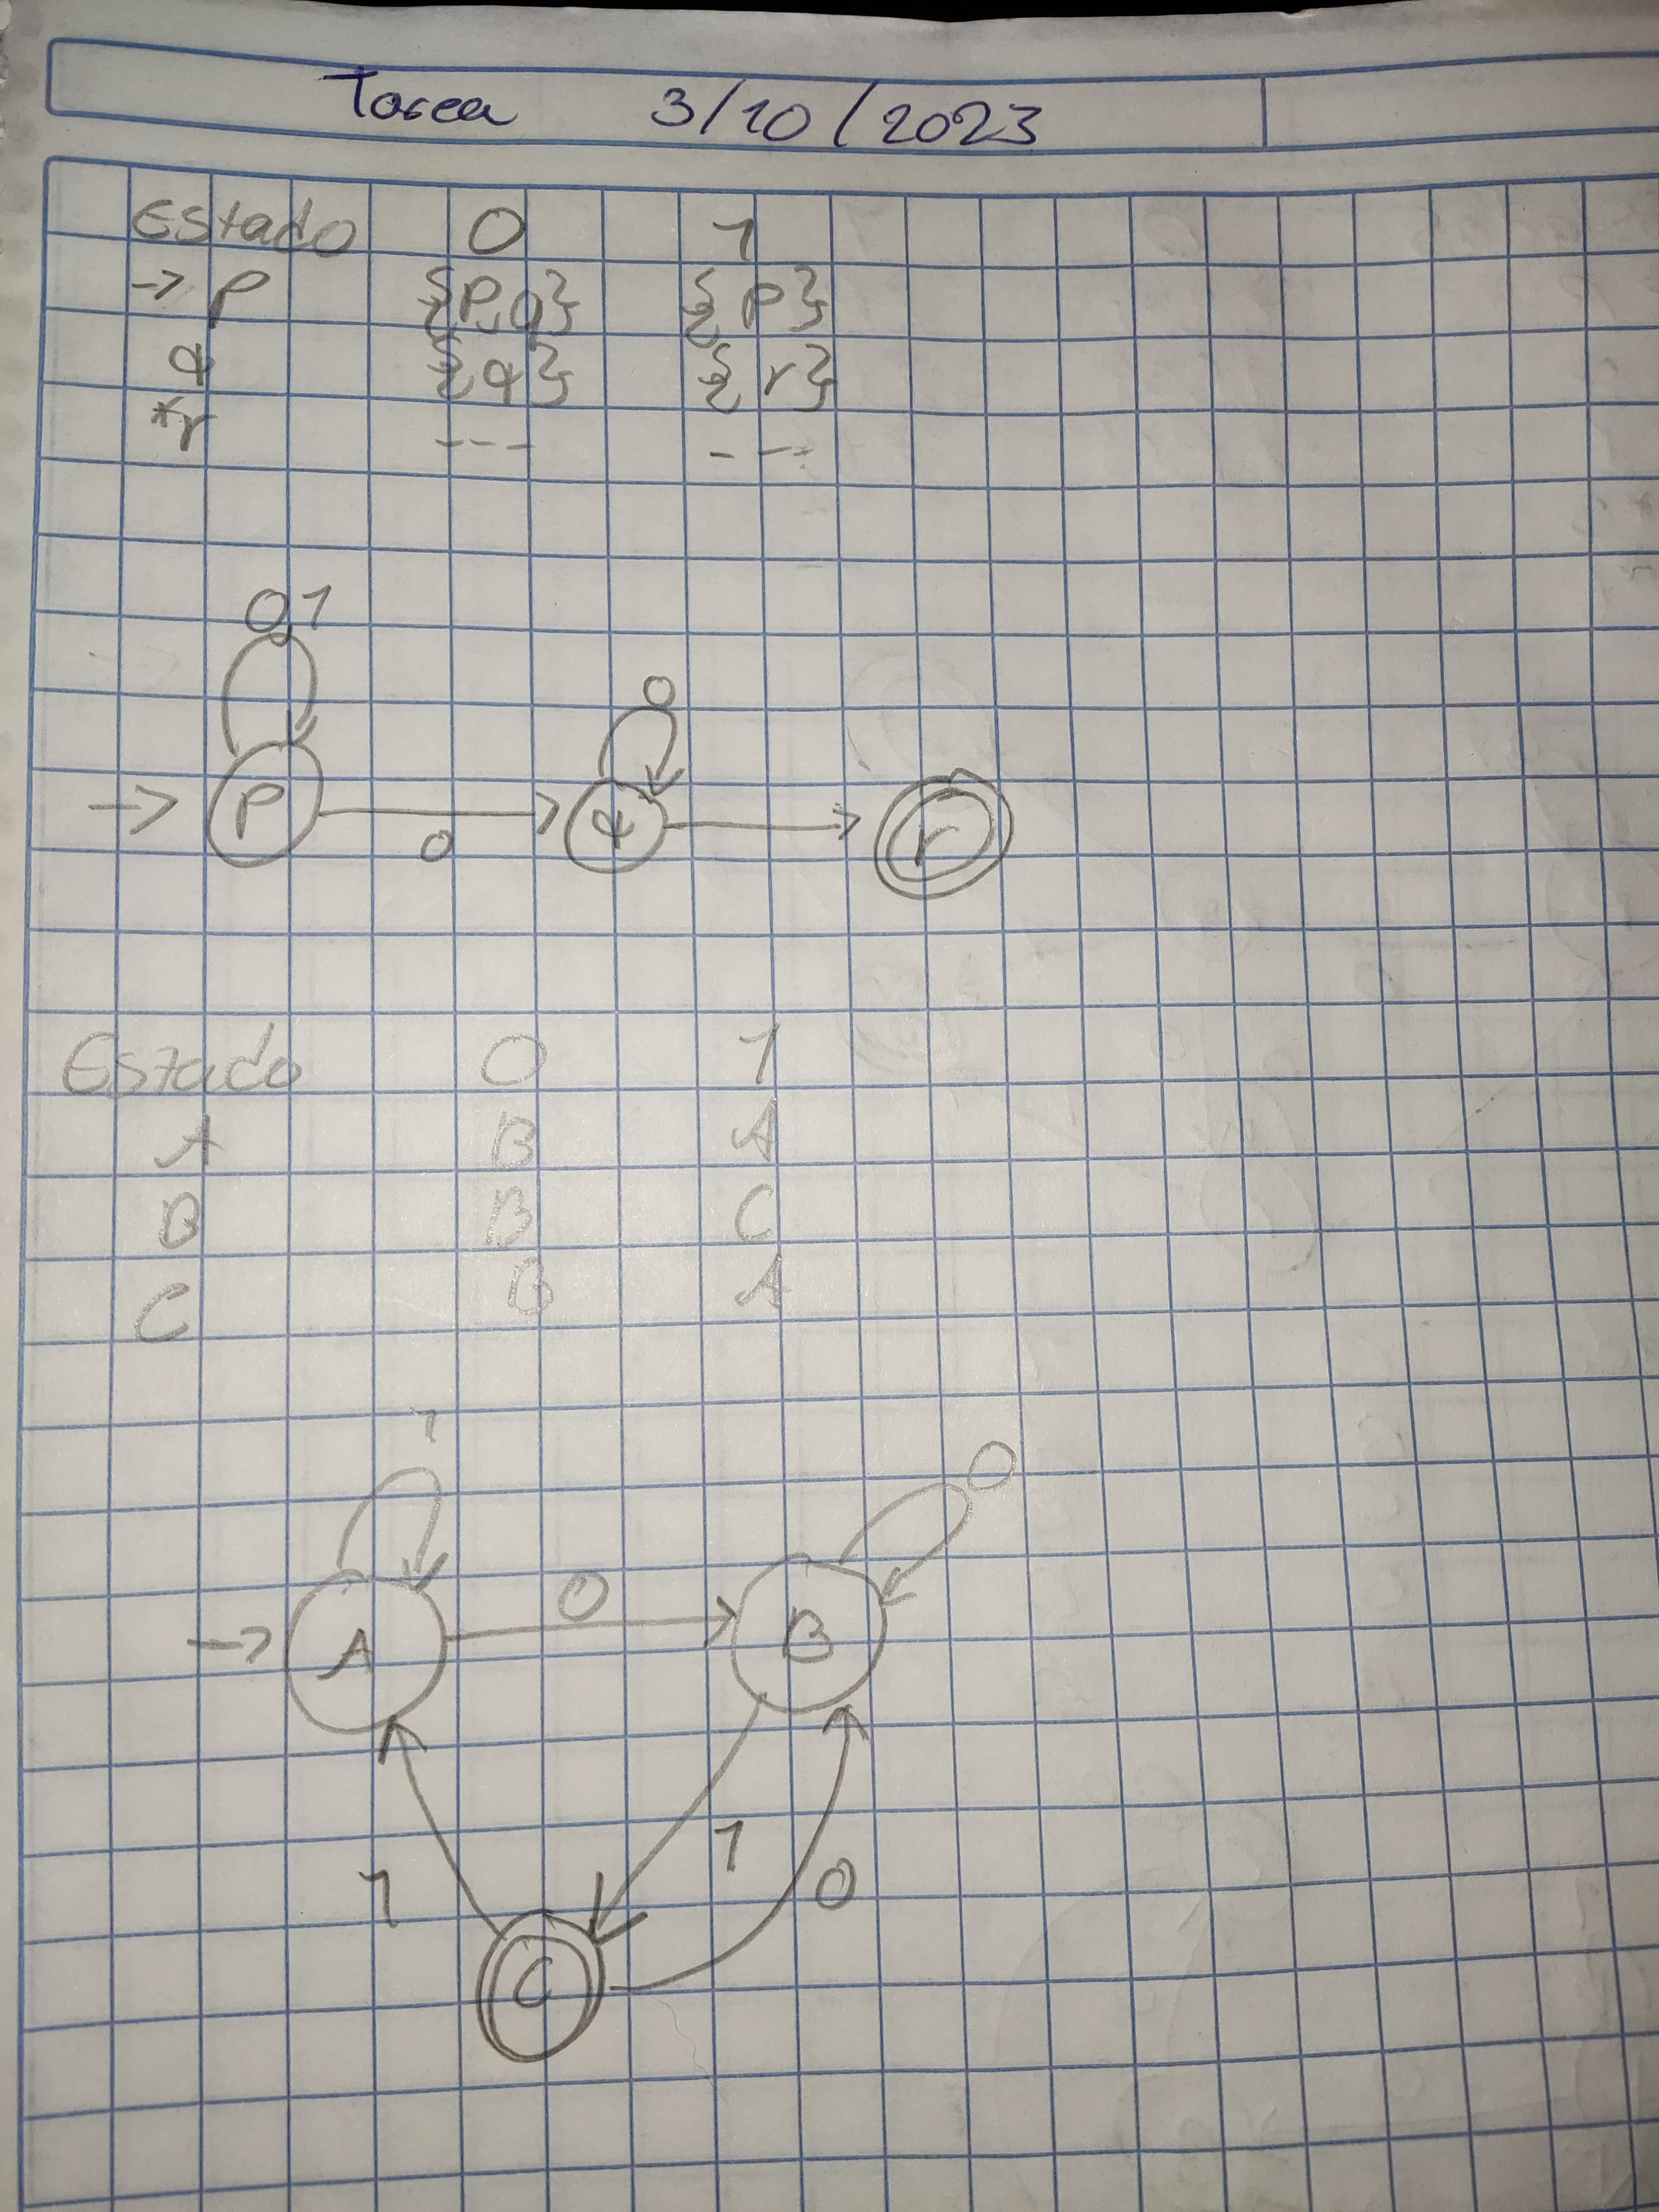 Tarea 3/10/2023
Estado 0 1
-> p {p,q} {p}
q {q} {r}
*r --- ---
0,1
0
-> p 0 q r
Estado 0 1
A B A
B B C
C B A
1 0
0
-> A B
1 1 0
C